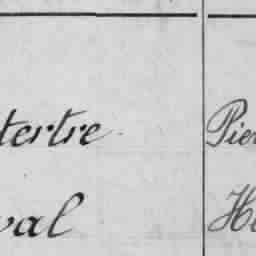 tertre Pier
val He